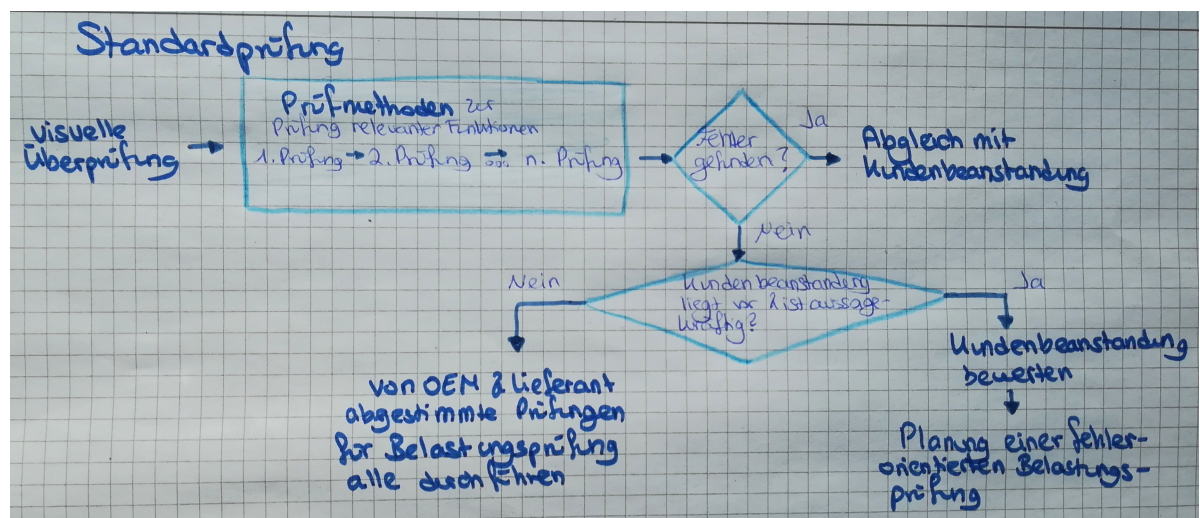 Standardprüfung
visuelle
Überprüfung
Prüfmethoden zur
Prüfung relevanter Funktionen
1. Prüfung → 2. Prüfung → ... n. Prüfung
Fehler
gefunden?
Ja
Abgleich mit
Kundenbeanstandung
Nein
Kundenbeanstandung
liegt vor & ist aussage-
kräftig?
Nein
von OEM & Lieferant
abgestimmte Prüfungen
für Belastungsprüfung
alle durchführen
Ja
Kundenbeanstandung
bewerten
Planung einer fehler-
orientierten Belastungs-
prüfung